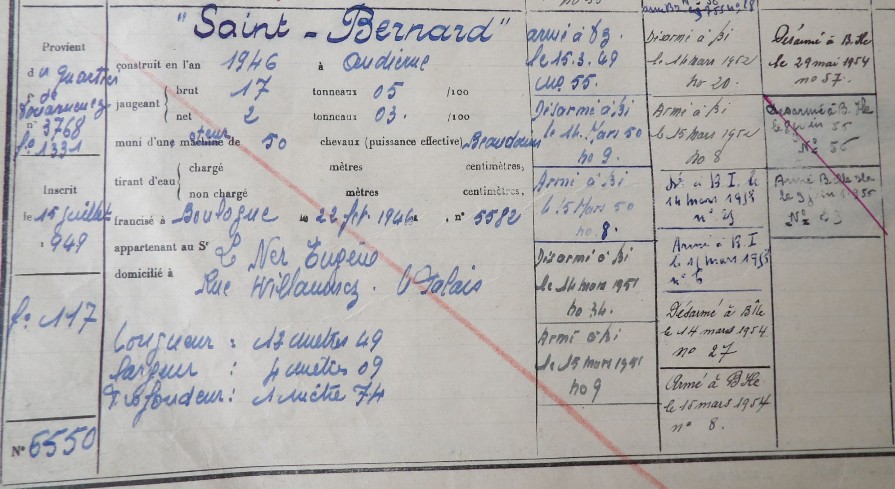 "Saint - Bernard"
Provient
du quartier
de
Douarnenez
n° 3768
f° 1331
Inscrit
le 15 juillet
1949
f° 117
N° 6550
construit en l'an 1946 à Audierne
jaugeant brut 17 tonneaux 05 /100
net 2 tonneaux 03. /100
muni d'une machine de 50 chevaux (puissance effective) Beaudouin
moteur
tirant d'eau chargé mètres centimètres,
non chargé mètres centimètres,
francisé à Boulogne le 22 1946, n° 5582
appartenant au Sr Le Ner Eugène
domicilié à Rue Willaumez. Le Palais
Longueur : 12 mètres 49
Largeur : 4 mètres 09
Profondeur : 1 mètre 74
armé à
le 15.3.49
no 55.
Désarmé à bi
le 14 Mars 50
no 9.
Armé à bi
le 15 Mars 50
no 8.
Désarmé à bi
le 14 mars 1951
no 34.
Armé à bi
le 15 mars 1951
no 9
Désarmé à bi
le 14 mars 1952
no 20.
Armé à bi
le 15 mars 1952
no 8
à B I. le
14 mars 1953
Armé à B I
le 15 mars 1953
n° 6
Désarmé à B Ile
le 14 mars 1954
no 27
Armé à B Ile
le 15 mars 1954
n° 8.
Désarmé à B. Ile
le 29 mai 1954
no 57.
Desarmé à B. Ile
le juin 55
N° 56
Armé B. Ile
le juin 1955
N° 43